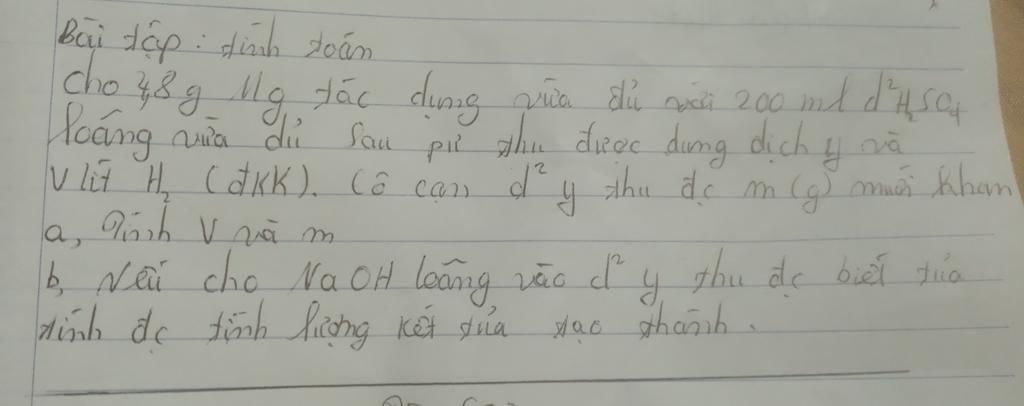 Bài tập : tính toán
Cho 4,8 g Mg tác dụng vừa đủ với 200 ml d² H₂SO₄
loãng vừa đủ sau pứ thu được dung dịch y và
V lít H₂ (đKK). Cô cạn d² y thu đc m (g) muối khan
a, Tính V và m
b, Nếu cho NaOH loãng vào d² y thu đc biết tủa
tính đc tính lượng kết tủa tạo thành.